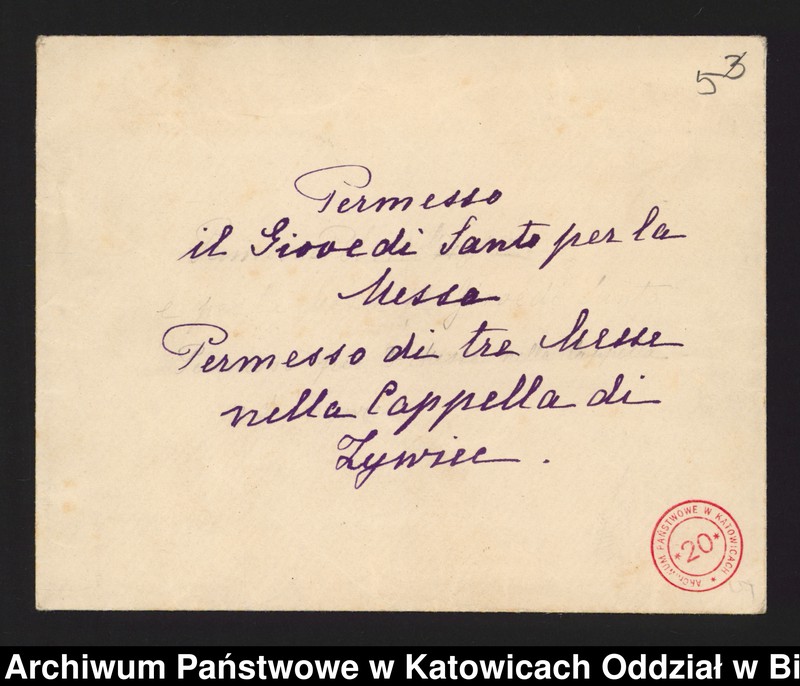 53
Permesso
il Giovedi Santo per la
Messa
Permesso di tre Messe
nella Cappella di
Zywiec.
ARCHIWUM PAŃSTWOWE W KATOWICACH
*20*
Archiwum Państwowe w Katowicach Oddział w Bi